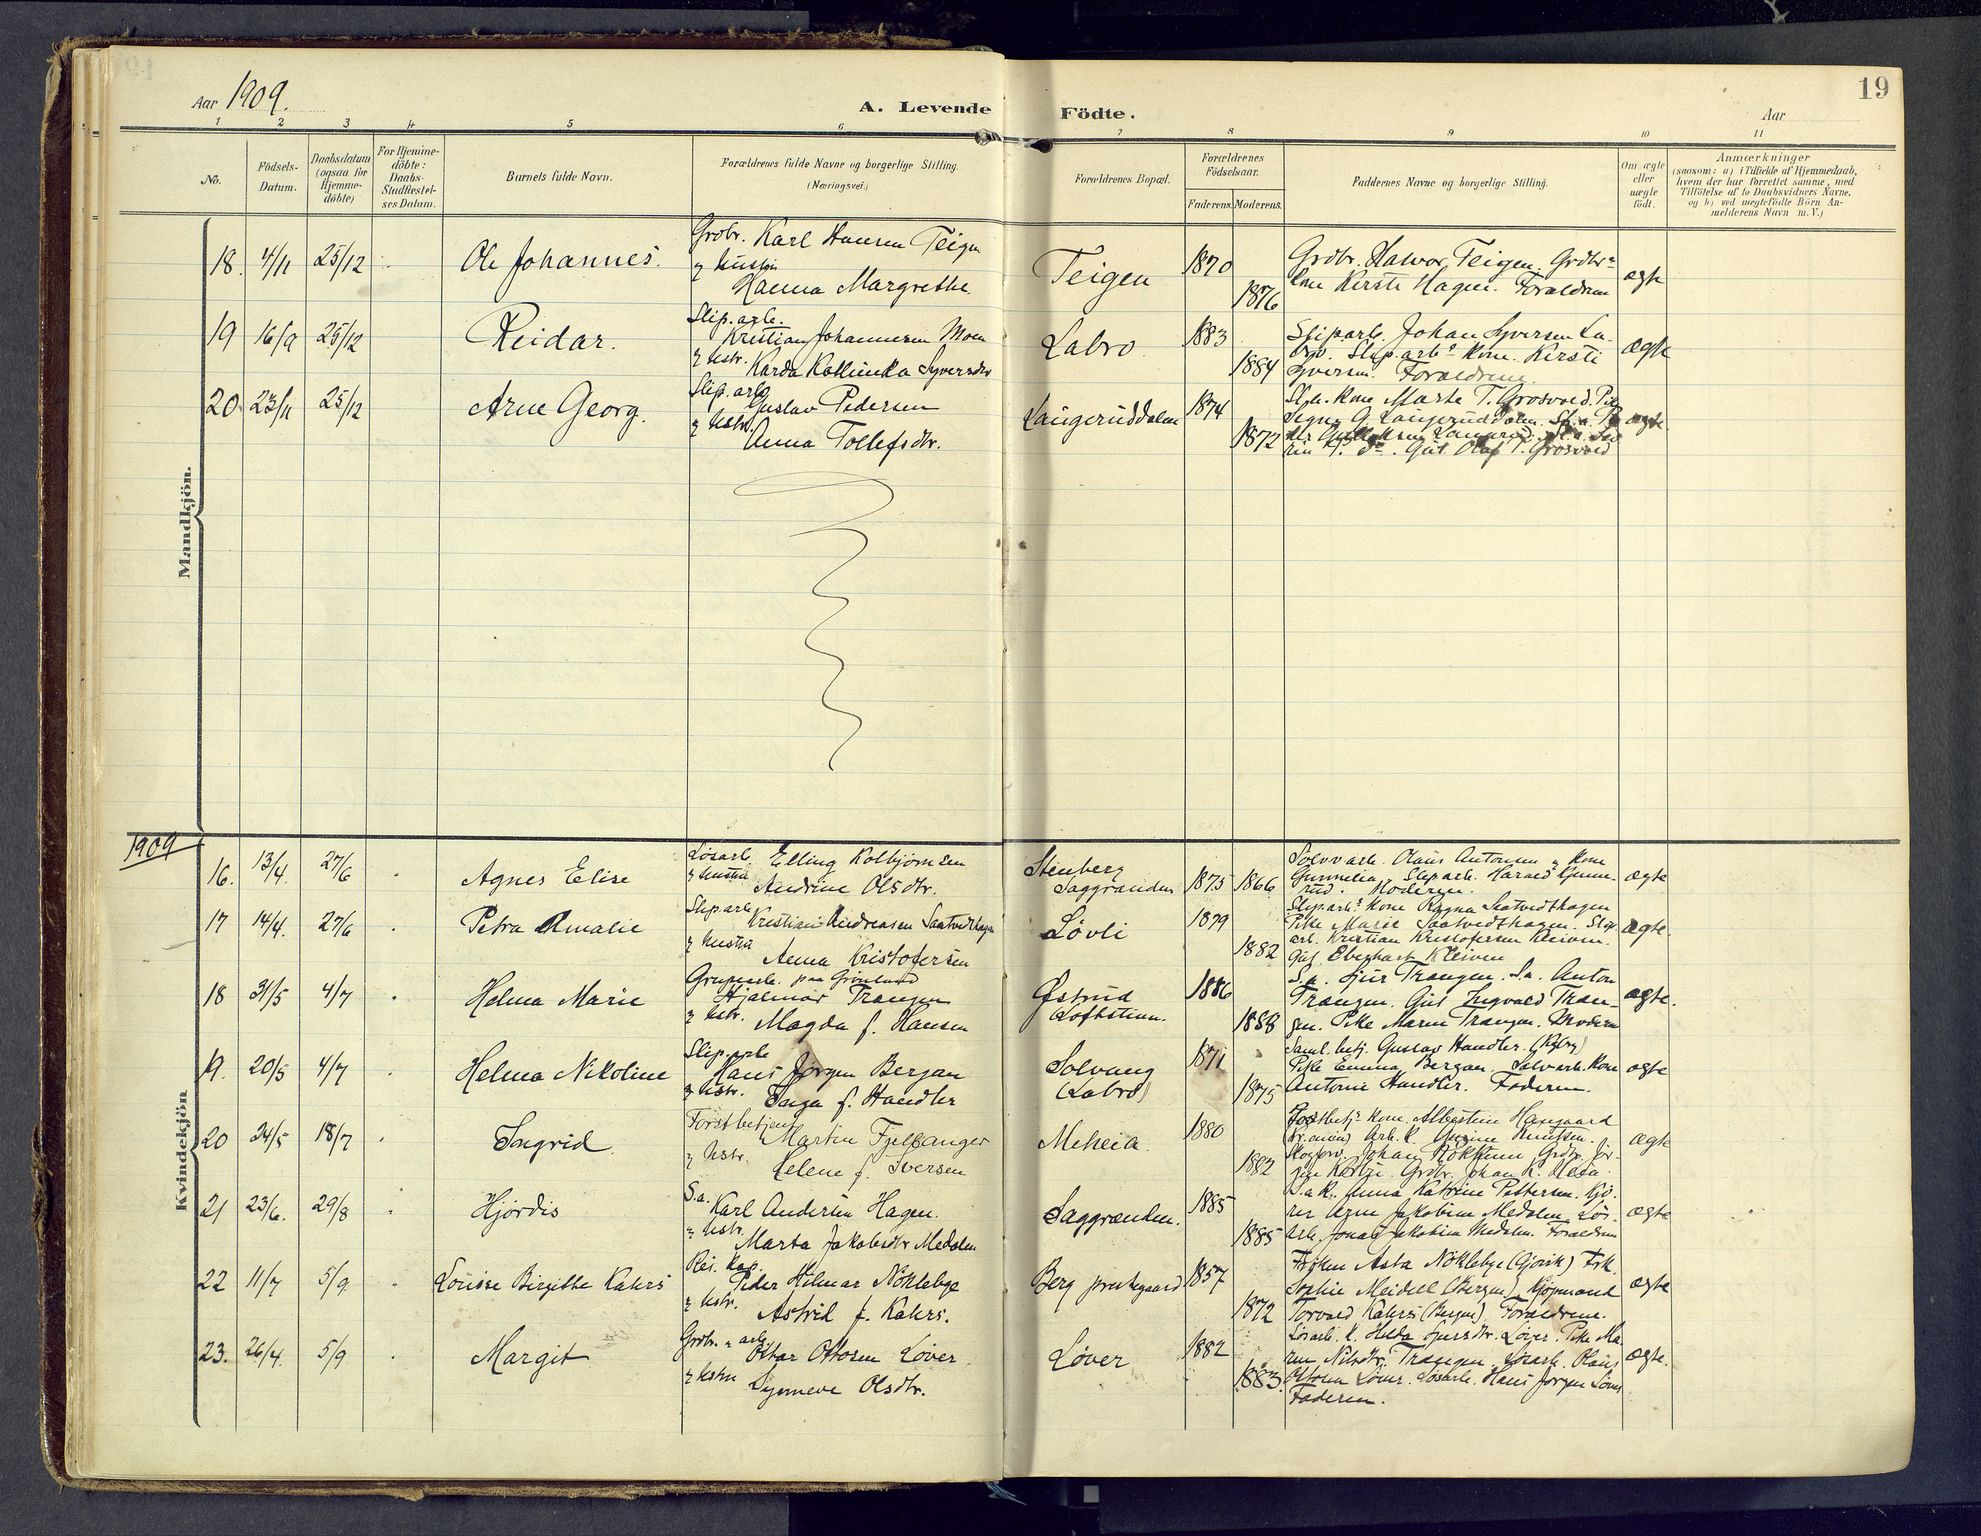 19
Aar 1909.
A. Levende Födte.
Aar
1 2 3 4 5 6 7 8 9 10 11
No.
Födsels-
Datum.
Daabsdatum
(ogsaa for
Hjemme-
döbte)
For Hjemme-
döbte:
Daabs-
Stadfæstel-
ses Datum.
Barnets fulde Navn.
Forældrenes fulde Navne og borgerlige Stilling.
(Næringsvei.)
Forældrenes Bopæl.
Forældrenes
Födselsaar.
Faderens. Moderens.
Faddernes Navne og borgerlige Stilling.
Om ægte
eller
uægte
födt.
Anmærkninger
(saasom: a) i Tilfælde af Hjemmedaab,
hvem der har forrettet samme, med
Tilföielse af to Daabsvidners Navne,
og b) ved uegtefödte Börn An-
melderens Navn m. V.)
Mandkjön.
18. 4/11 25/12 Ole Johannes.
Grdbr. Karl Hansen Teigen
& hustru
Hanna Margrethe.
Teigen 1870 1876
Grdbr. Halvor Teigen. Grdbr.
kone Kirsti Hagen. Forældrene
ægte
19 16/9 25/12 Reidar.
Slip.arb.
Kristian Johannesen Moen
& hstr. Karda Syversdtr
Labro 1883 1884
Sliparb. Johan Syversen La-
bro. Slip.arbs kone Kirsti
Syversen. Forældrene.
ægte
20. 23/11 25/12 Arne Georg.
Slip.arb
Gustav Pedersen
& hstr.
Anna Tollefsdtr.
Laugeruddalen 1874 1872
kone Marte T. Grosvold. Pike
G. Laugeruddalen.
Olaf T. Grosvold
ægte
1909
Kvindekjön
16. 13/4. 27/6 Agnes Elise
Løsarb. Elling Kolbjørnsen
& hustru
Andrine Olsdtr.
Stenberg
Saggrænden 1875 1866
Sølvarb. Olaus Antonsen & kone
Gunnelia. Sliparb. Harald
Moderen.
ægte
17 14/4. 27/6 Petra Amalie
Slip.arb
Kristian Andreasen Saatvedthagen
& hustru
Anna Kristofersen
Løvli 1879 1882
Slip.arbs kone Ragna Saatvedthagen
Pike Marie Saatvedthagen. Slip.
arb. Kristian Kristofersen Kleiven.
Gut Eberhart Kleiven
ægte.
18 31/5 4/7 Helma Marie
Grubearb. paa Grønland
Hjalmar Trangen
& hstr. Magda f. Hansen
Østrud
Loftstuen. 1886 1888
S.a. Sjur Trangen. S.a. Anton
Trangen. Gut Ingvald Tran-
gen. Pike Maren Trangen. Moderen
ægte.
19. 20/5 4/7 Helma Nikoline
Slip.arb
Hans Jørgen Bergan
& hstr. Inga f. Handler
Solvang
(Labro) 1871 1875
betj. Gustav Handler. (Kgbrg)
Pike Emma Bergan. Sølvarb. kone
Antonie Handler. Faderen.
ægte
20 24/5 18/7 Ingrid
Forstbetjent
Martin Fjellanger
& hstr.
Helene f. Iversen
Meheia 1880 1882
Forstbetj. kone Albertine Haugaard
Knutsen.
Johan Grdbr. Jør-
gen Grdbr. Johan K. Helia.
ægte
21 23/6. 29/8 Hjørdis
S.a. Karl Andersen Hagen.
& hstr.
Marta Jakobsdtr Medalen
Saggrænden. 1885 1885
S.a.k. Anna Katrine Pettersen.
Jakobine Medalen. Løs-
arb. Jonas Jakobsen Medalen. Forældrene
ægte
22 11/7 5/9 Lovise Birgitte Kahrs
Res. kap.
Peder Hilmar Nöklebye
& hstr.
Astrid f. Kahrs.
Berg prestegaard 1857 1872
Frøken Asta Nöklebye (Gjøvik) Frk.
Sophie Meidell (Bergen), Kjøpmand
Torvald Kahrs (Bergen). Forældrene.
ægte
23. 26/4. 5/9 Margit
Grdbr. & arb
Ottar Ottosen Løver
& hstru
Synneve Olsdtr.
Løver 1882 1883.
Løsarb. k. Hilda Løver. Pike Ma-
ren Nilsdtr. Trangen. Løsarb. Olaus
Ottosen Løver. Løsarb. Hans Jørgen Løver
Faderen.
ægte.